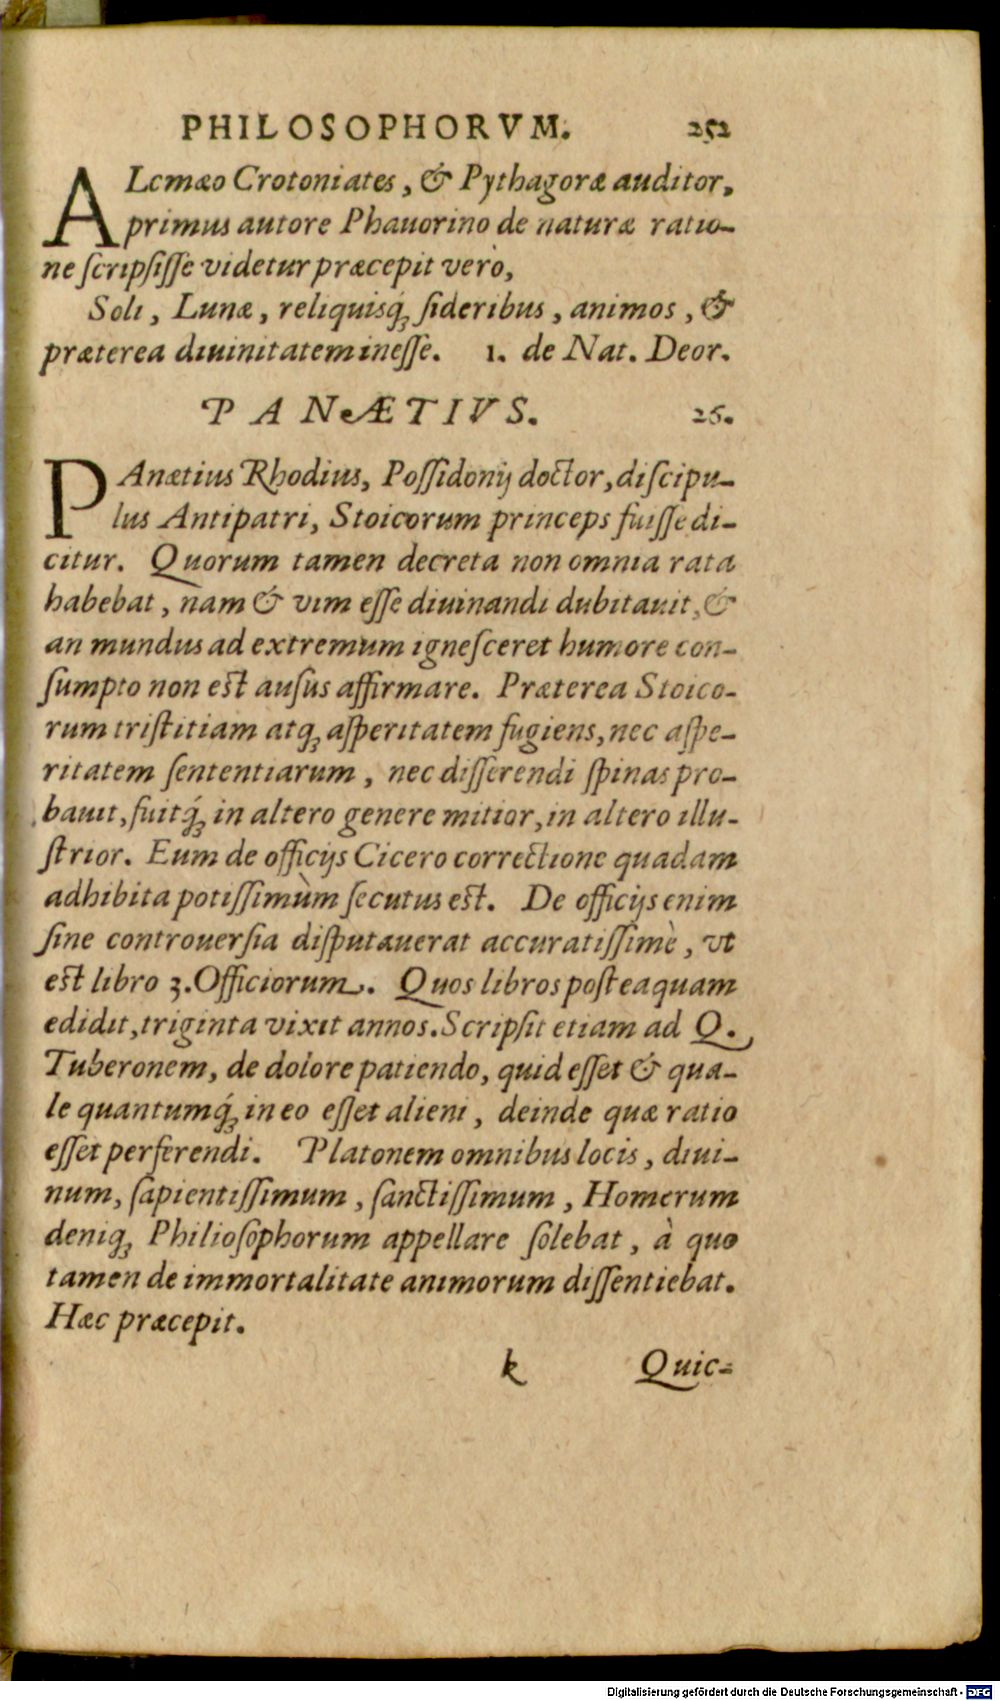 PHILOSOPHORVM. 252
ALcmæo Crotoniates, & Pythagoræ auditor,
primus autore Phauorino de naturæ ratio-
ne scripsisse videtur præcepit verò,
Soli, Lunæ, reliquisq́ꝫ sideribus, animos, &
præterea diuinitatem inesse. 1. de Nat. Deor.
PANÆTIVS. 26.
PAnætius Rhodius, Possidonij doctor, discipu-
lus Antipatri, Stoicorum princeps fuisse di-
citur. Quorum tamen decreta non omnia rata
habebat, nam & vim esse diuinandi dubitauit, &
an mundus ad extremum ignesceret humore con-
sumpto non est ausus affirmare. Præterea Stoico-
rum tristitiam atqꝫ asperitatem fugiens, nec aspe-
ritatem sententiarum, nec disserendi spinas pro-
bauit, fuitq́ꝫ in altero genere mitior, in altero illu-
strior. Eum de officijs Cicero correctione quadam
adhibita potissimùm secutus est. De officijs enim
sine controuersia disputauerat accuratissimè, vt
est libro 3. Officiorum. Quos libros posteaquam
edidit, triginta vixit annos. Scripsit etiam ad Q.
Tuberonem, de dolore patiendo, quid esset & qua-
le quantumq́ꝫ in eo esset alieni, deinde quæ ratio
esset perferendi. Platonem omnibus locis, diui-
num, sapientissimum, sanctissimum, Homerum
deniqꝫ Philiosophorum appellare solebat, à quo
tamen de immortalitate animorum dissentiebat.
Hæc præcepit.
k Quic-
Digitalisierung gefördert durch die Deutsche Forschungsgemeinschaft - DFG